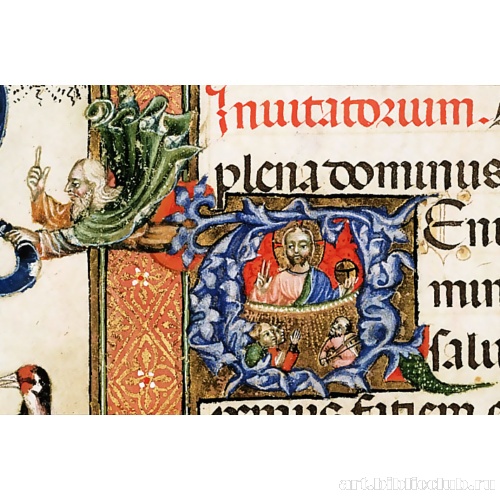 Inuitatorium. A
plena dominus
Eni
min
salu
art.biblioclub.ru